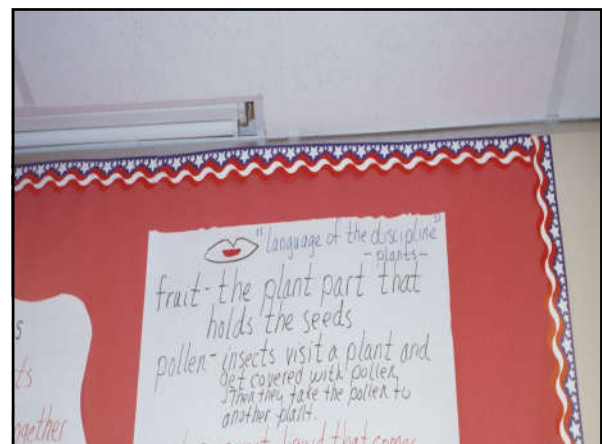 "language of the discipline"
-plants-
fruit - the plant part that
holds the seeds
pollen - insects visit a plant and
get covered with pollen.
Then they take the pollen to
another plant.
liquid that comes
s
ts
ogether